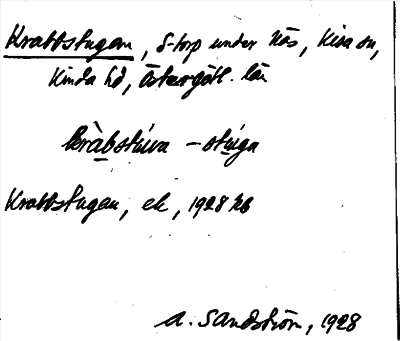 Krabbstugan, S-torp under Näs, Kisa sn,
Kinda hd, Östergötl. län
kràbstúwa – stúga
Krabbstugan, ek, 1928 kb
A. Sandström, 1928